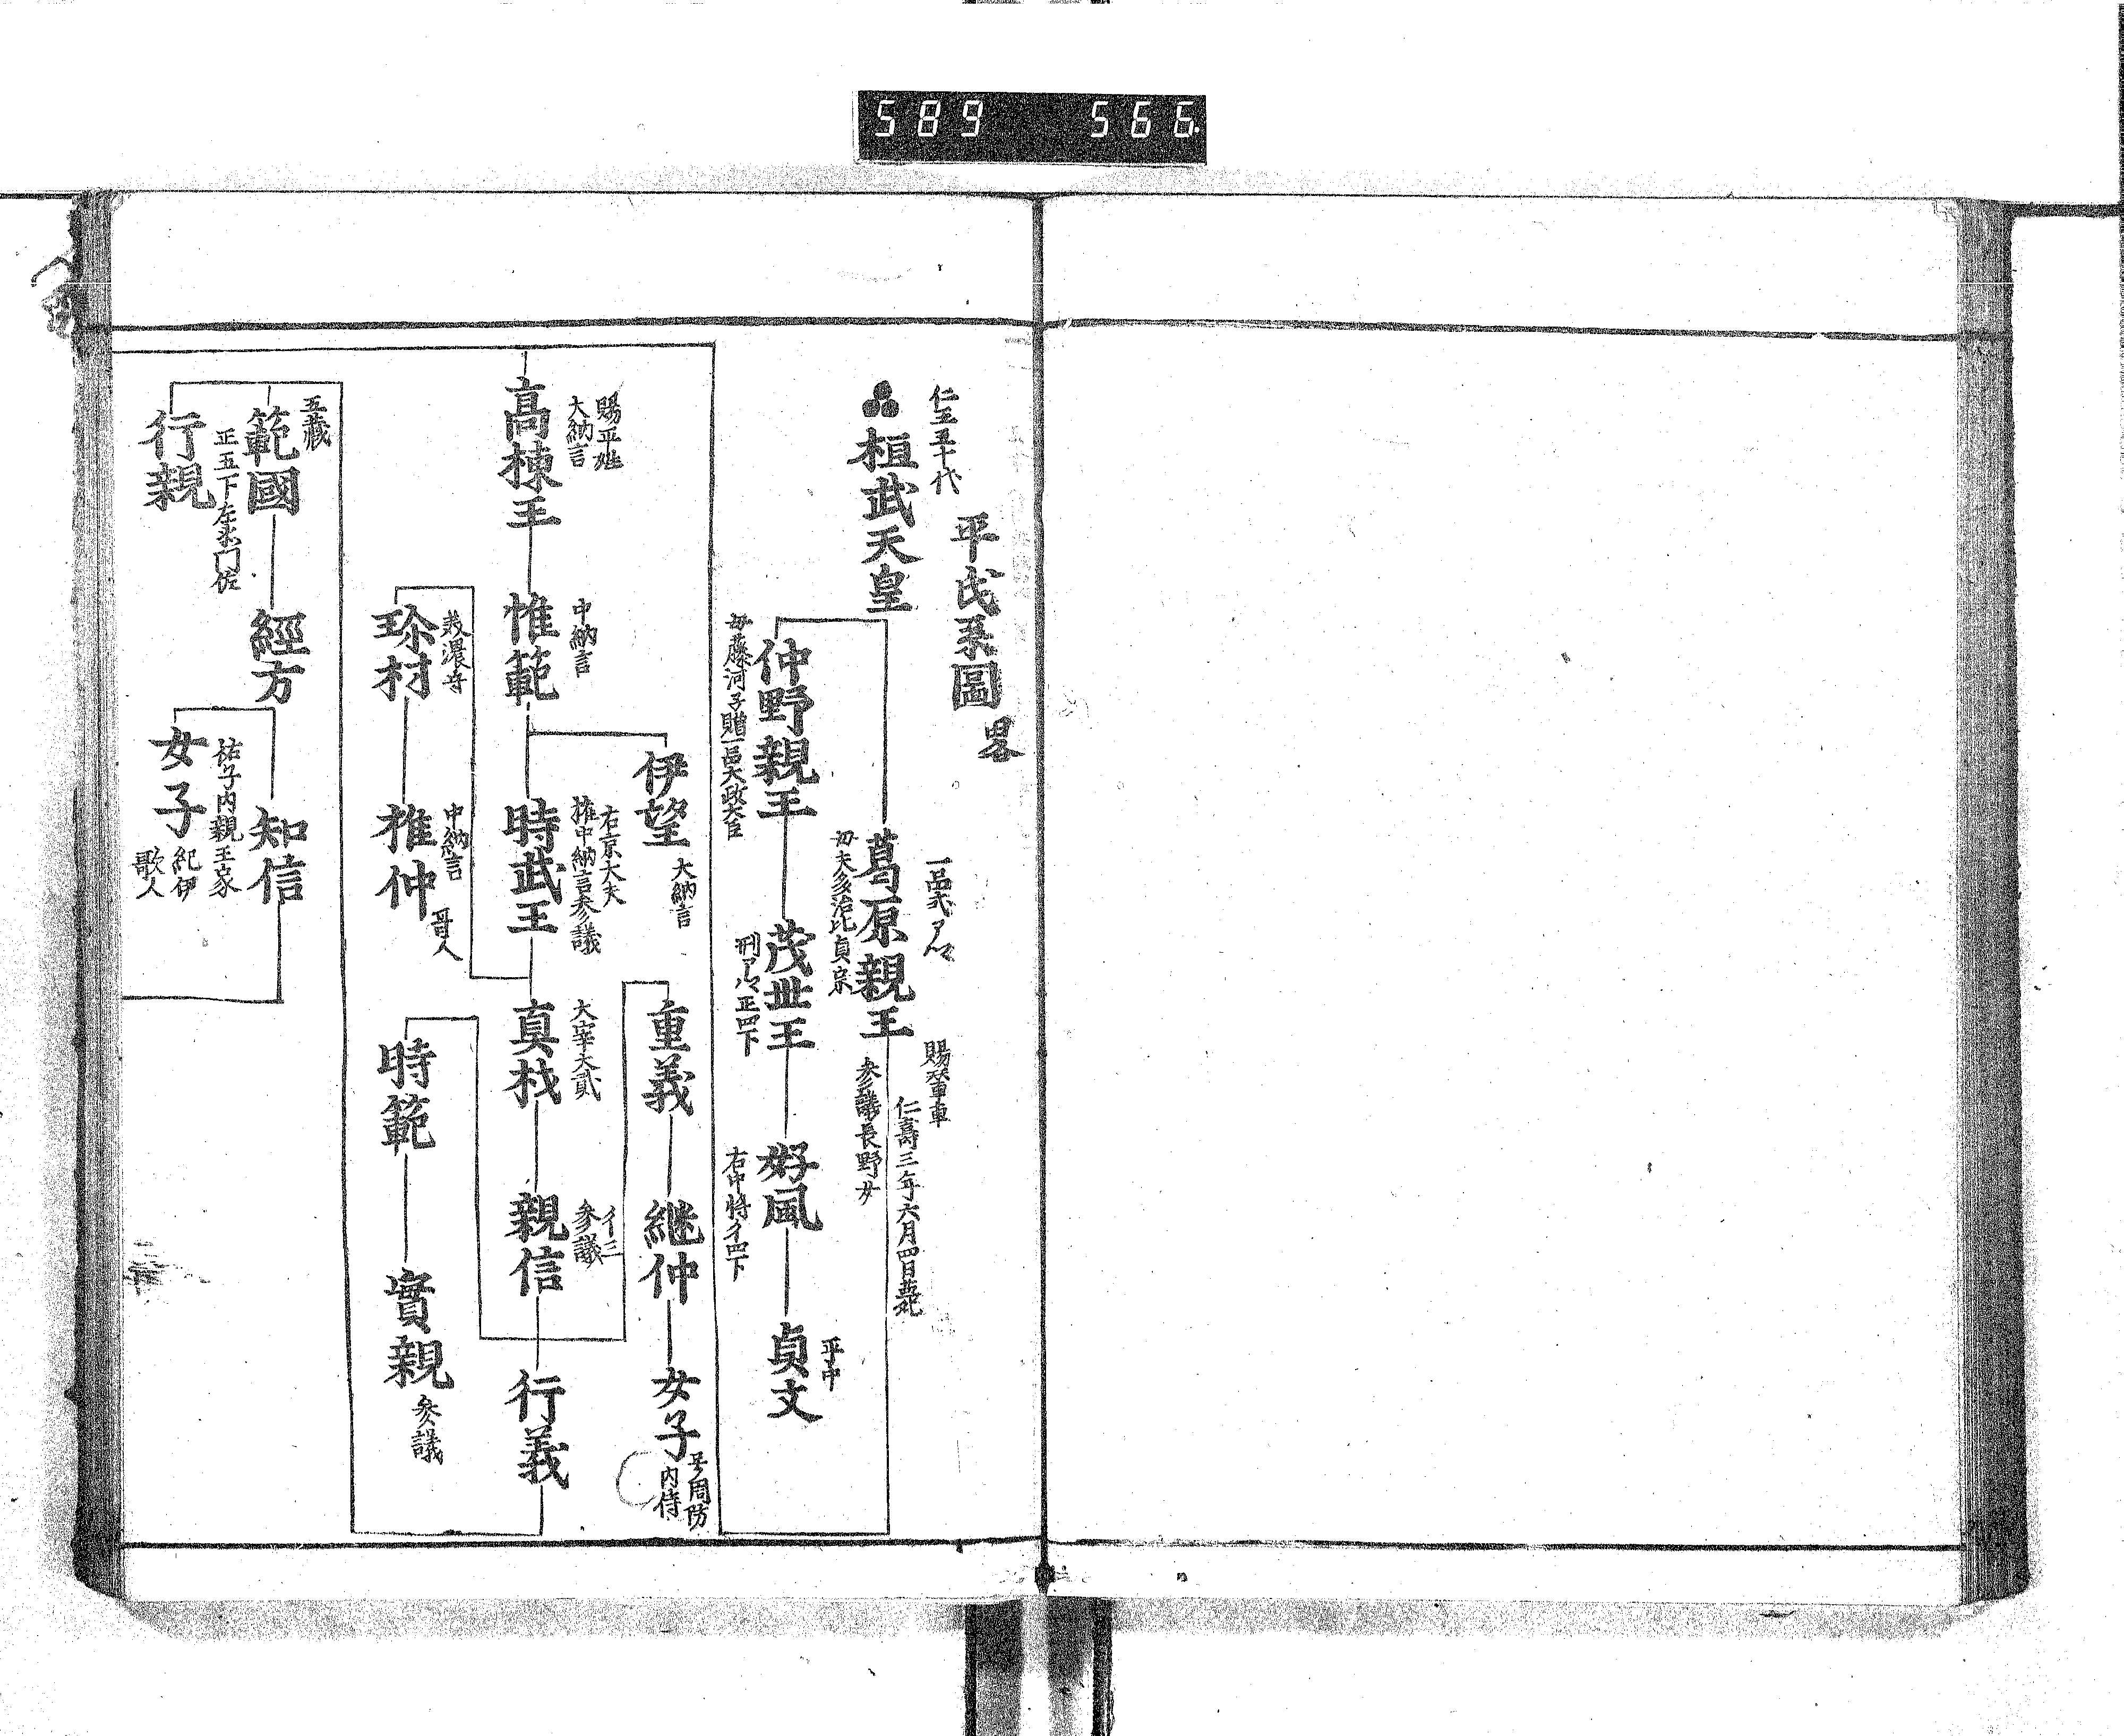 589 566
平氏系圖 畧
仁王五十代
桓武天皇
一品式ア卿
葛原親王
賜輦車
仁壽三年六月四日薨
母夫多治比真宗
参議長野女
仲野親王
母藤河子贈一品大政大臣
茂世王
刑ア卿正四下
好風
右中将
平中
貞文
賜平姓
大納言
高棟王
中納言
惟範
伊望
大納言
右京大夫
権中納言参議
時武王
重義
継仲
女子
号周防
内侍
大宰大貳
真材
参議
親信
行義
美濃守
珎材
中納言
推仲
哥人
時範
實親
参議
五藏
範國
正五下左衛门佐
經方
知信
行親
女子
祐子内親王家
紀伊
歌人